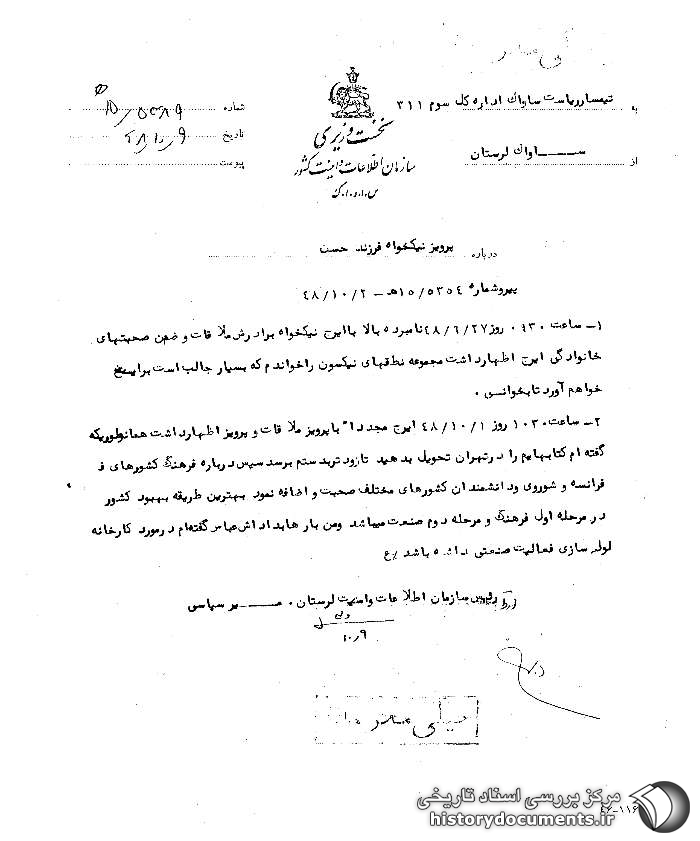 به تیمسار ریاست ساواک اداره کل سوم ۳۱۱
از ســـاواک لرستان
نخست وزیری
سازمان اطلاعات و امنیت کشور
س.ا.و.ا.ک
شماره
تاریخ ۴۸/۱۰/۹
پیوست
درباره پرویز نیکخواه فرزند حسن
پیرو شماره ۱۵/۵۳۵٤هـ - ٤۸/۱۰/۲
۱- ساعت ۰۹۳۰ روز ٤۸/۶/۲۷ نامبرده بالا با ایرج نیکخواه برادرش ملاقات و ضمن صحبتهای
خانوادگی ایرج اظهار داشت مجموعه نطقهای نیکسون را خواندم که بسیار جالب است برایت
خواهم آورد تا بخوانی .
۲- ساعت ۱۰۳۰ روز ٤۸/۱۰/۱ ایرج مجدداً با پرویز ملاقات و پرویز اظهار داشت همانطوریکه
گفته ام کتابهایم را در تهران تحویل بدهید تا زودتر بدستم برسد سپس درباره فرهنگ کشورهای ف
فرانسه و شوروی و دانشمندان کشورهای مختلف صحبت و اضافه نمود بهترین طریقه بهبود کشور
در مرحله اول فرهنگ و مرحله دوم صنعت میباشد و من بارها بداداش عباس گفته‌ام در مورد کارخانه
لوله سازی فعالیت صنعتی داشته باشد
رئیس سازمان اطلاعات و امنیت لرستان .
۱۰/۹
خیلی محرمانه
٤۶-۱۱۶
مرکز بررسی اسناد تاریخی
historydocuments.ir